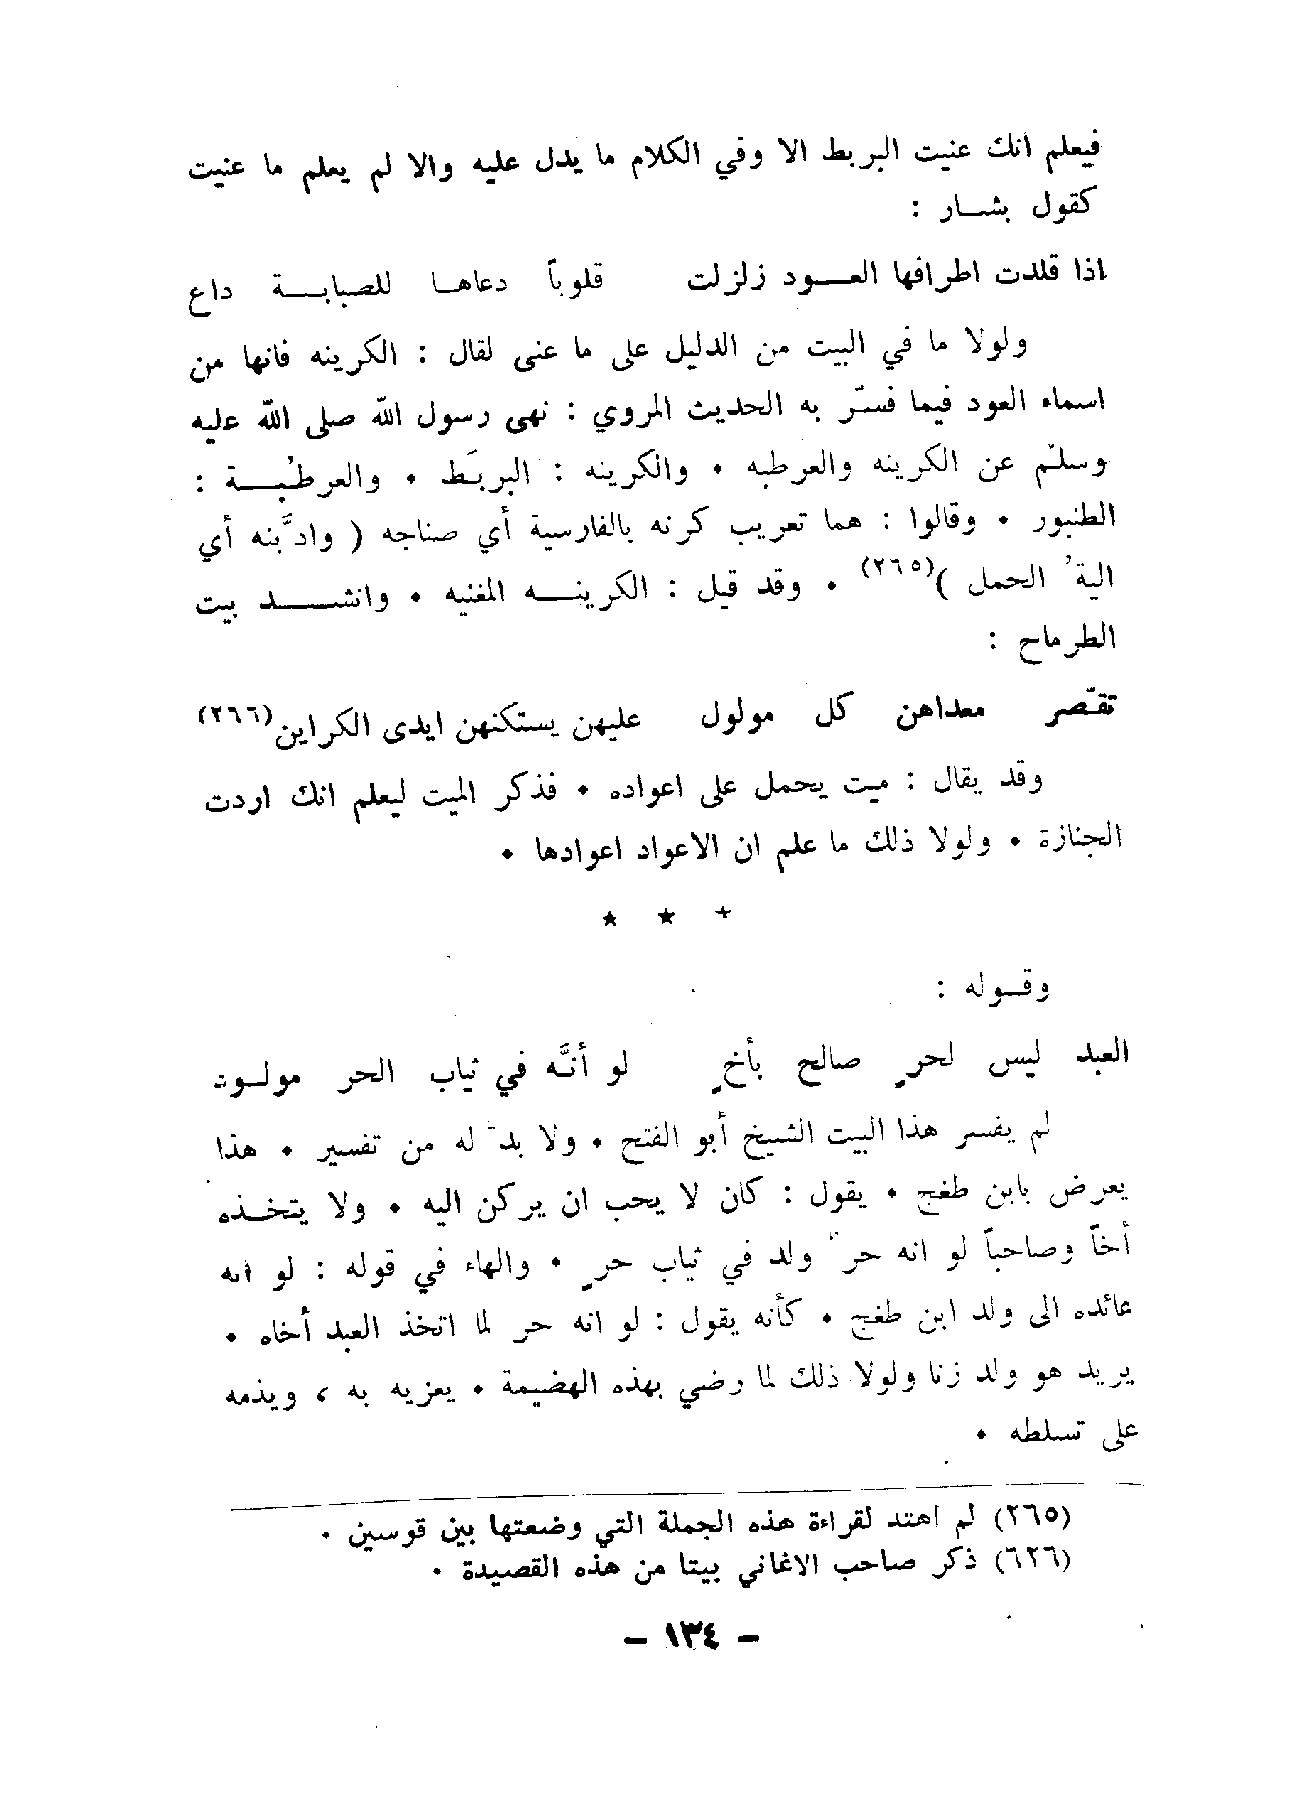 فيعلم انك عنيت البربط الا وفي الكلام ما يدل عليه والا لم يعلم ما عنيت
كقول بشـــار :
اذا قلدت اطرافها العـــود زلزلت قلوباً دعاهـا للصبابـــة داع
ولولا ما في البيت من الدليل على ما عنى لقال : الكرينه فانها من
اسماء العود فيما فسّر به الحديث المروي : نهى رسول الله صلى الله عليه
وسلّم عن الكرينه والعرطبه • والكرينه : البربَط • والعرطُبـــة :
الطنبور • وقالوا : هما تعريب كرنه بالفارسية أي صناجه ( وادبَّنه أي
الية الحمل )(٢٦٥) • وقد قيل : الكرينـــه المغنيه • وانشـــد بيت
الطرماح :
تقصّر معداهن كل مولول عليهن يستكنهن ايدى الكراين(٢٦٦)
وقد يقال : ميت يحمل على اعواده • فذكر الميت ليعلم انك اردت
الجنازة • ولولا ذلك ما علم ان الاعواد اعوادها •
* * *
وقـوله :
العبد ليس لحرٍ صالح بأخٍ لو أنَّـه في ثياب الحر مولـود
لم يفسر هذا البيت الشيخ أبو الفتح • ولا بد له من تفسير • هذا
يعرض بابن طغج • يقول : كان لا يحب ان يركن اليه • ولا يتخـذه
أخاً وصاحباً لو انه حر ولد في ثياب حرٍ • والهاء في قوله : لو انه
عائده الى ولد ابن طغج • كأنه يقول : لو انه حر لما اتخذ العبد أخاه •
يريد هو ولد زنا ولولا ذلك لما رضي بهذه الهضيمة • يعزيه به ، ويذمه
على تسلطه •
(٢٦٥) لم اهتد لقراءة هذه الجملة التي وضعتها بين قوسين •
(٦٢٦) ذكر صاحب الاغاني بيتا من هذه القصيدة •
– ١٣٤ –